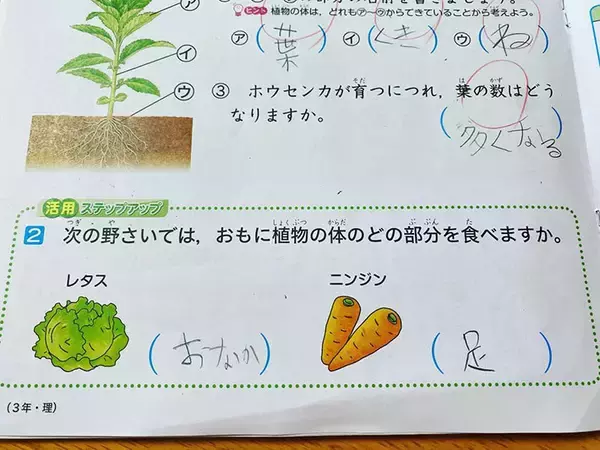 ヒント 植物の体は、どれもア〜ウからできていることから考えよう。
ア (葉) イ (くき) ウ (ね)
ア
イ
ウ
③ ホウセンカが育つにつれ，葉の数はどう
なりますか。
(多くなる)
活用 ステップアップ
2 次の野さいでは，おもに植物の体のどの部分を食べますか。
レタス ニンジン
(おなか) (足)
(3年・理)